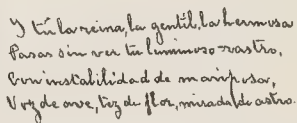 Y tú la reina, la gentil, la hermosa
Pasas sin ver tu luminoso rastro,
Con instabilidad de mariposa,
Voz de ave, tez de flor, mirada de astro.